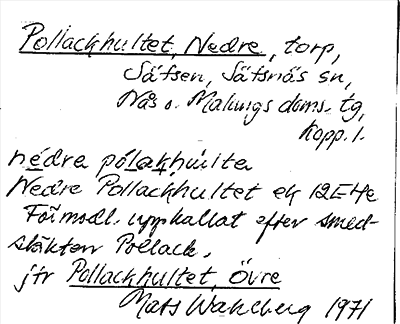 Pollackhultet, Nedre, torp,
Säfsen, Säfsnäs sn,
Nås o. Malungs doms. tg,
Kopp. l.
nédre pólakhulta
Nedre Pollackhultet ek 12E4e
Förmodl. uppkallat efter smed-
släkten Pollack.
jfr Pollackhultet, Övre
Mats Wahlberg 1971